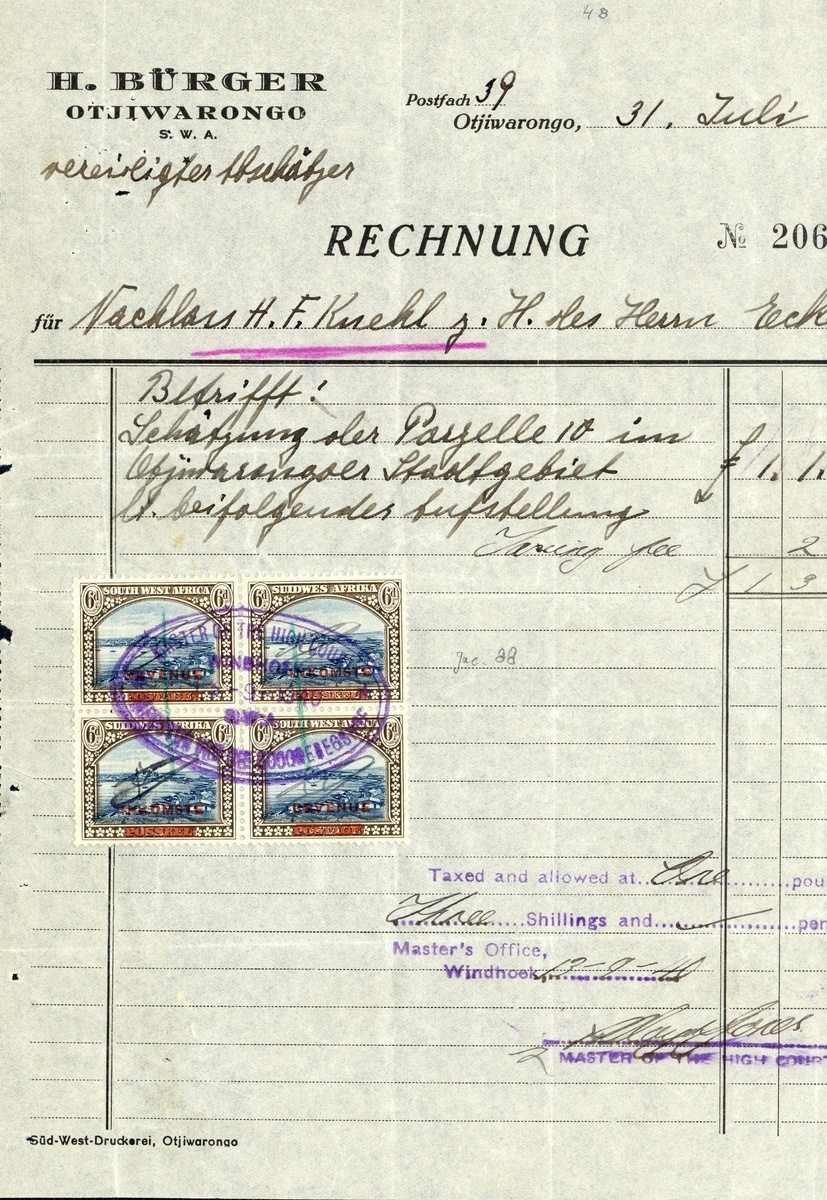 48
H. BÜRGER
OTJIWARONGO
S. W. A.
vereidigter Abschätzer
Postfach 39
Otjiwarongo, 31. Juli
RECHNUNG
№ 206
für Nachlass H. F. Knehl z. H. des Herrn Eck
Betrifft:
Schätzung der Parzelle 10 im
Otjiwarongoer Stadtgebiet £ 1. 1.
lt. beifolgender Aufstellung
Taxing fee 2
£ 1 3
6d SOUTH WEST AFRICA 6d
REVENUE
POSTAGE
6d SUIDWES AFRIKA 6d
INKOMSTE
POSSEEL
6d SUIDWES AFRIKA 6d
INKOMSTE
POSSEEL
6d SOUTH WEST AFRICA 6d
REVENUE
POSTAGE
MASTER OF THE HIGH COURT
WINDHOEK
Taxed and allowed at One pou
Three Shillings and pen
Master's Office,
Windhoek 13-9-40
MASTER OF THE HIGH COURT
2
Süd-West-Druckerei, Otjiwarongo